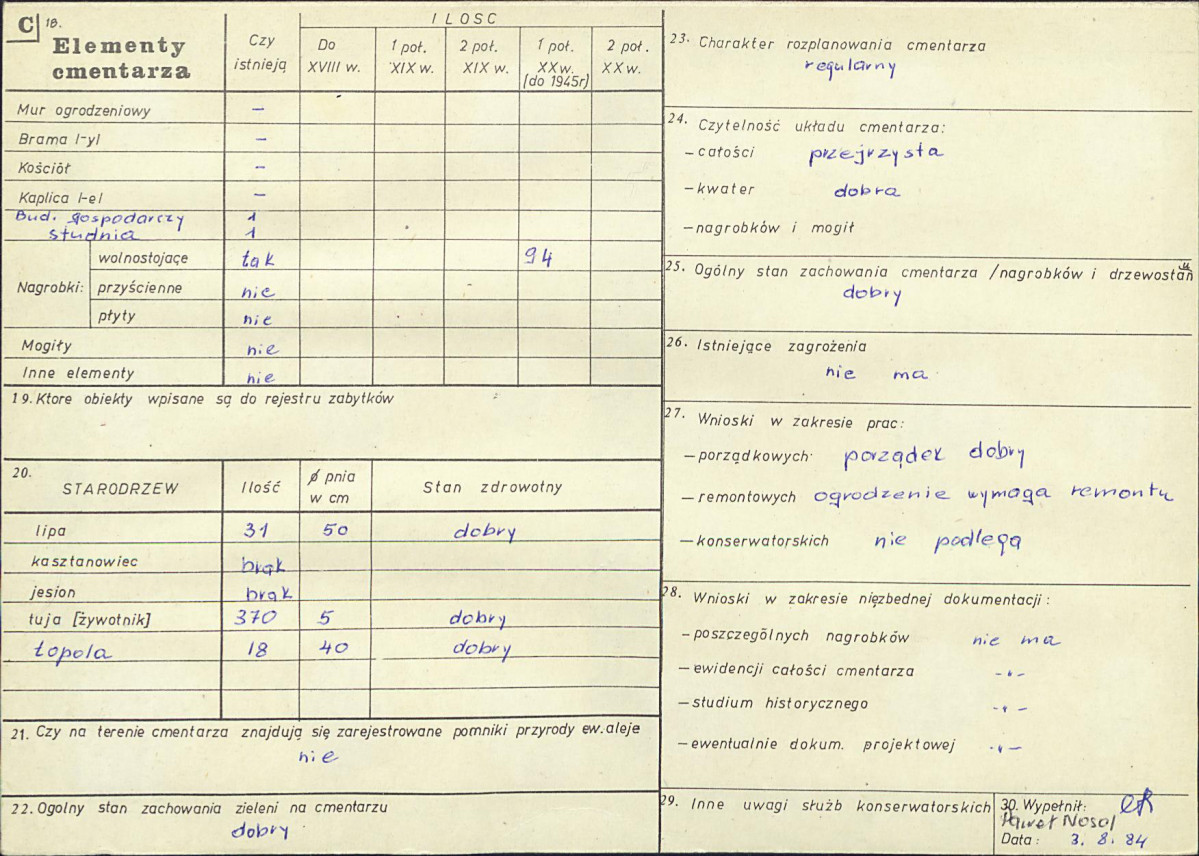 C 18.
Elementy
cmentarza
Czy
istnieją
ILOSC
Do
XVIII w.
1 poł.
XIX w.
2 poł.
XIX w.
1 poł.
XX w.
(do 1945r)
2 poł.
XX w.
Mur ogrodzeniowy –
Brama /-y/ –
Kościół –
Kaplica /-e/ –
Bud. gospodarczy 1
studnia 1
Nagrobki: wolnostojące tak 94
przyścienne nie
płyty nie
Mogiły nie
Inne elementy nie
19. Ktore obiekty wpisane są do rejestru zabytków
20.
STARODRZEW Ilość ø pnia
w cm Stan zdrowotny
lipa 31 50 dobry
kasztanowiec brak
jesion brak
tuja [żywotnik] 370 5 dobry
topola 18 40 dobry
21. Czy na terenie cmentarza znajdują się zarejestrowane pomniki przyrody ew. aleje
nie
22. Ogolny stan zachowania zieleni na cmentarzu
dobry
23. Charakter rozplanowania cmentarza
regularny
24. Czytelność układu cmentarza:
– całości przejrzysta
– kwater dobra
– nagrobków i mogił
25. Ogólny stan zachowania cmentarza /nagrobków i drzewostan
dobry
26. Istniejące zagrożenia
nie ma
27. Wnioski w zakresie prac:
– porządkowych porządek dobry
– remontowych ogrodzenie wymaga remontu
– konserwatorskich nie podlega
28. Wnioski w zakresie niezbędnej dokumentacji:
– poszczególnych nagrobków nie ma
– ewidencji całości cmentarza -"-
– studium historycznego -"-
– ewentualnie dokum. projektowej -"-
29. Inne uwagi służb konserwatorskich
30. Wypełnił:
Paweł Nosal
Data: 3. 8. 84